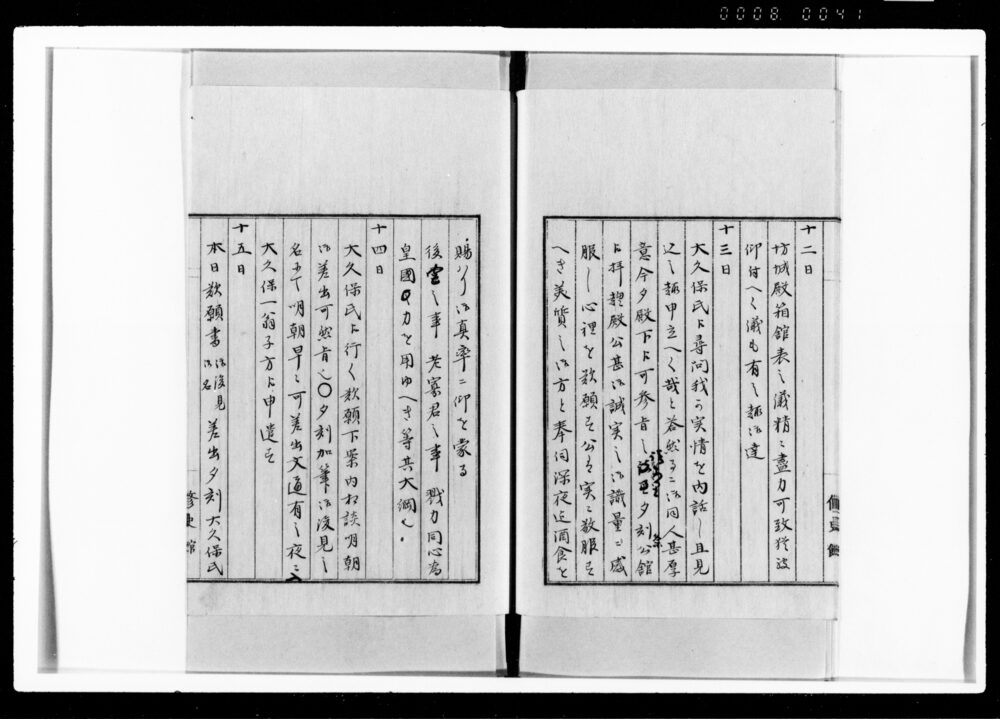 0008 0041
十二日
坊城殿箱館表之儀精々盡力可致猶改
仰付へく儀も有之趣御達
十三日
大久保氏ニ尋問我カ実情を内話し且見
込之趣申立へく哉と答然ニ御同人甚厚
意今夕殿下ニ可参旨夕刻公館
ニ拝趨殿公甚御誠実之御識量ニ感
服し心裡を歎願す公も実ニ敬服す
へき美質之御方と奉伺深夜迄酒食を
修史館
賜ハり御真率ニ仰を蒙る
後之事 老寡君之事 戮力同心為
皇國力を用ゆへき等其大綱也
十四日
大久保氏ニ行く歎願下案内相談明朝
御差出可然旨也〇夕刻加筆御後見之
名ニ而明朝早々可差出文通有之夜ニ入
大久保一翁子方ニ申遣す
十五日
本日歎願書 御後見御名 差出夕刻大久保氏
修史館